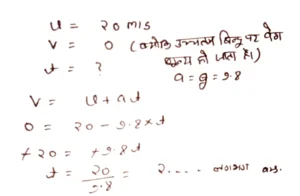 u = 20 m/s
v = 0 (क्योंकि उच्चतम बिन्दु पर वेग
t = ? शून्य हो जाता है।)
a = g = 9.8
v = u + at
0 = 20 - 9.8 × t
+20 = +9.8 t
t = 20/9.8 = 2.... लगभग Ans.